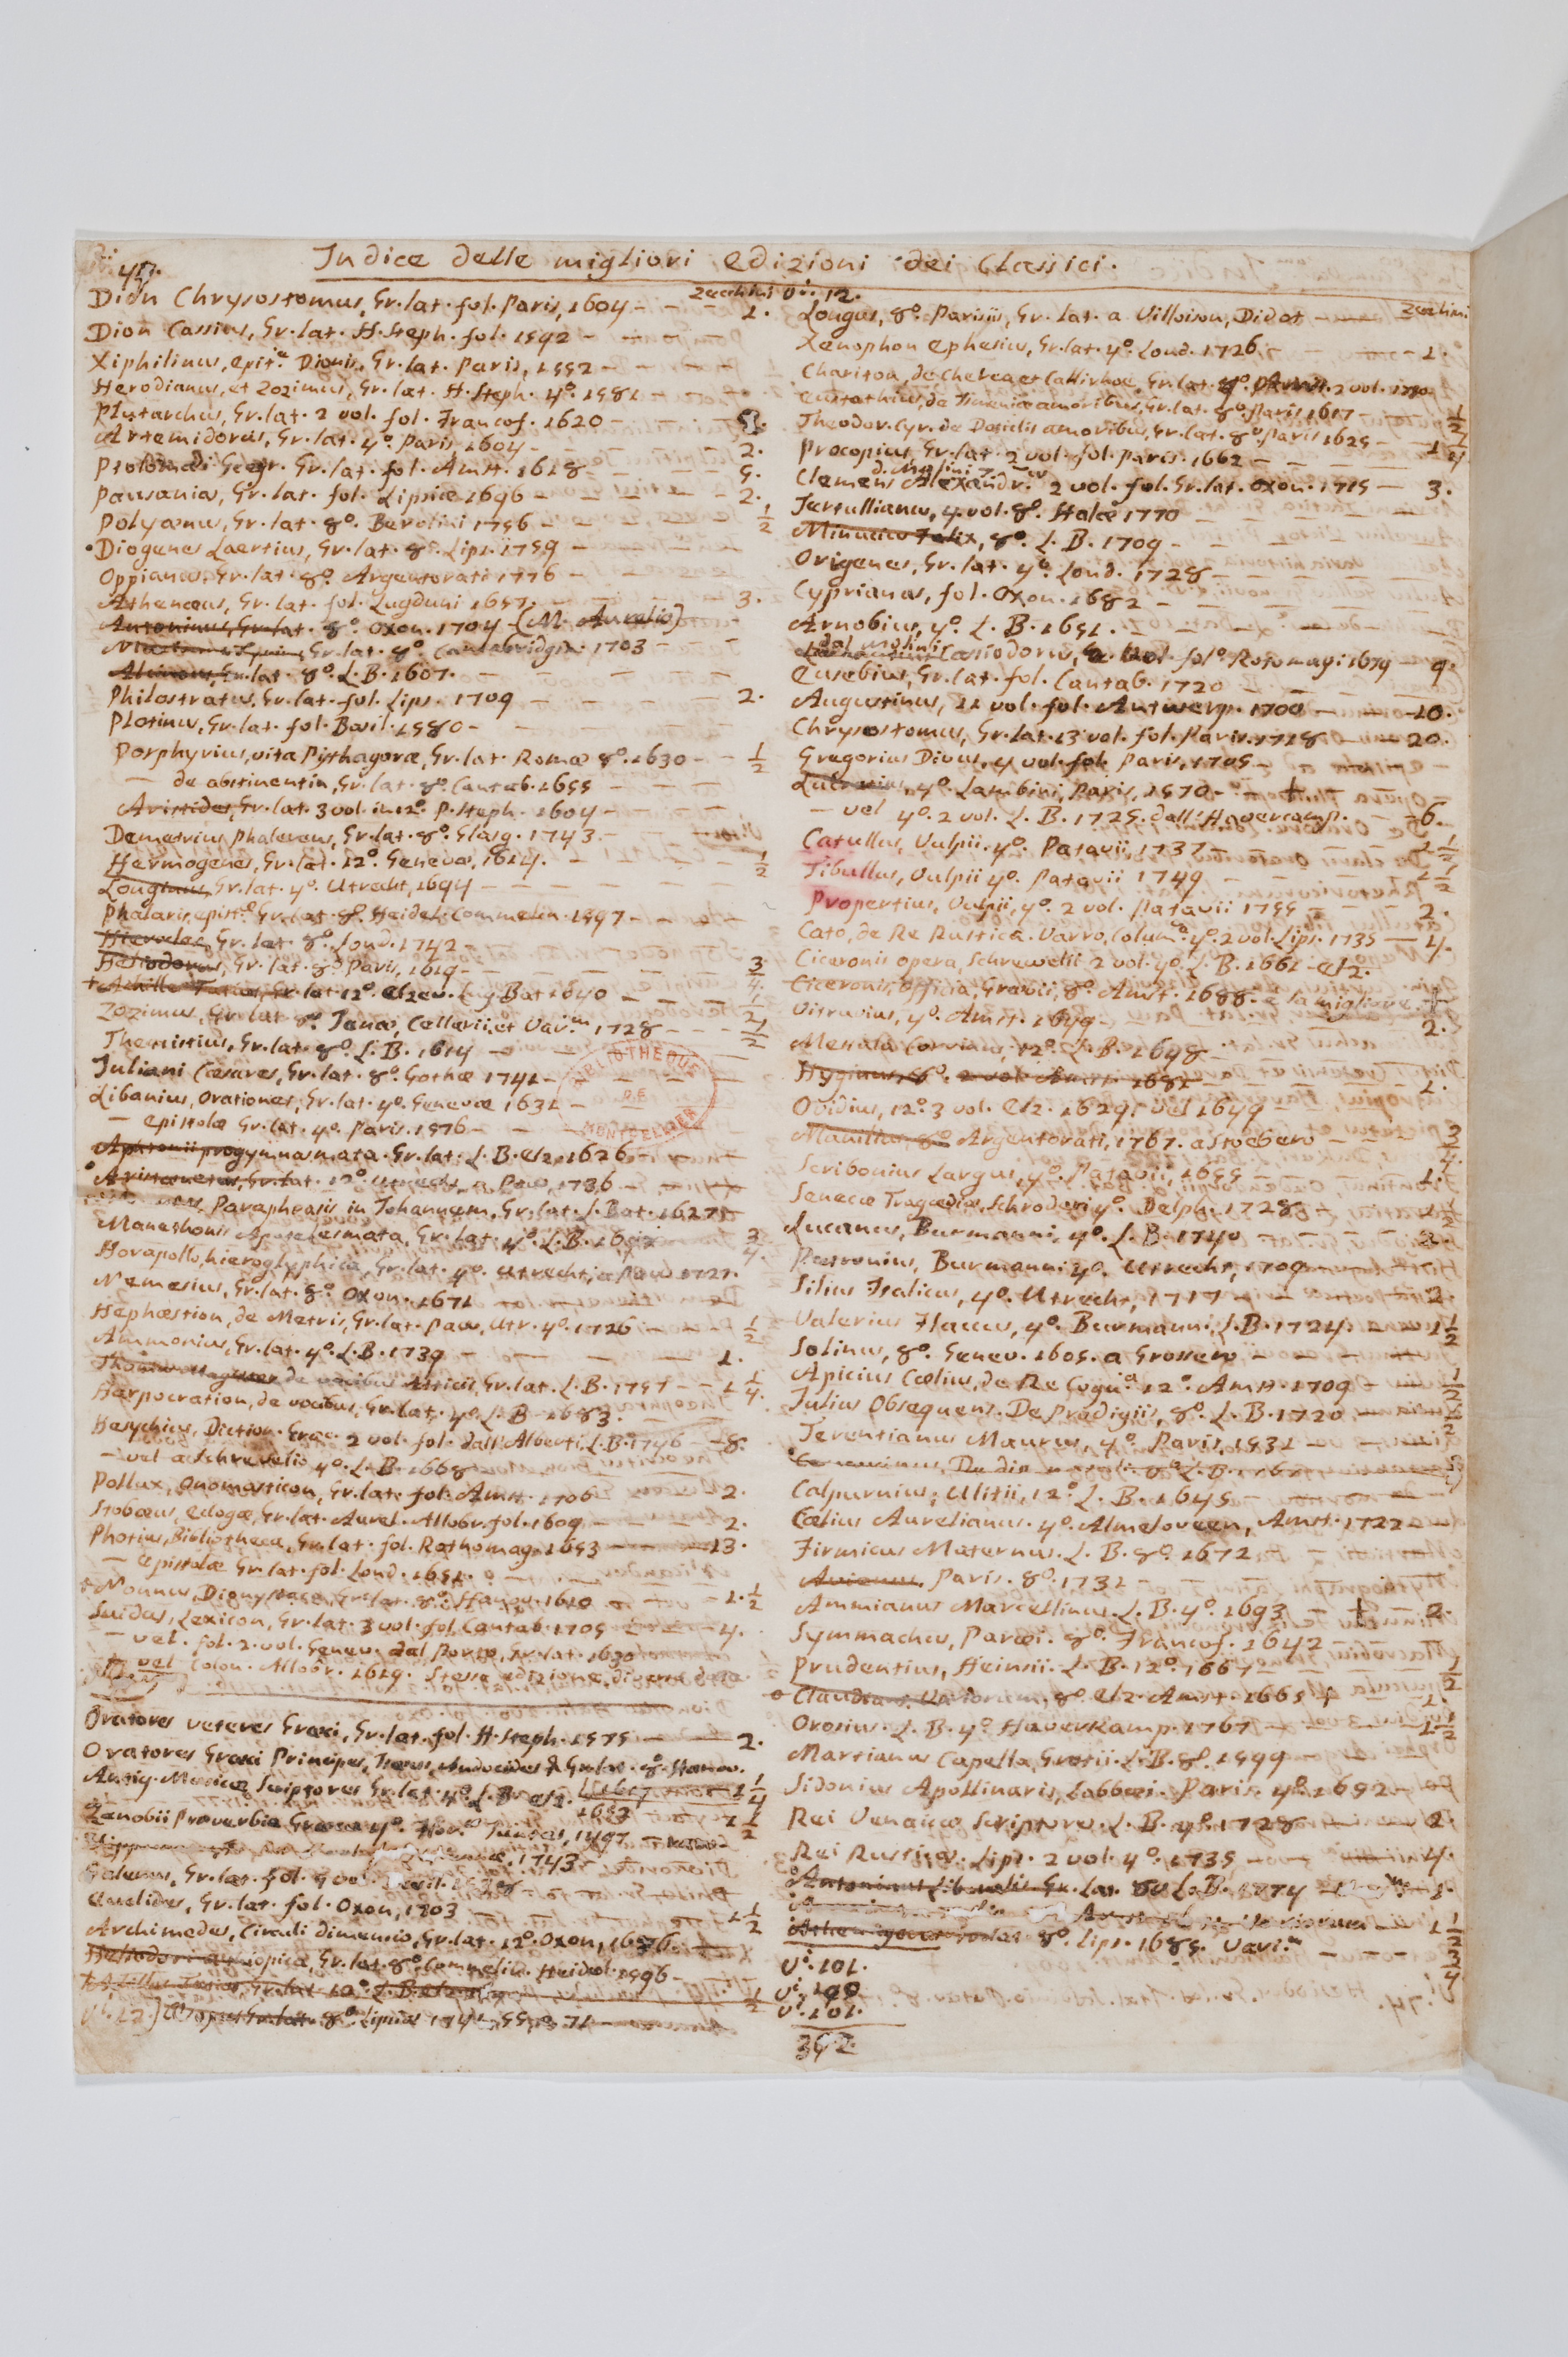 Indice delle migliori edizioni dei Classici.
47.
Zecchini
Dion Chrysostomus, Gr. lat. fol. Paris, 1604 - - 1.
Dion Cassius, Gr. lat. H. Steph. fol. 1592 -
Xiphilinus, epit.e Dionis, Gr. lat. Paris, 1592 -
Herodianus, et Zozimus, Gr. lat. H. Steph. 4º. 1581 -
Plutarchus, Gr. lat. 2 vol. fol. Francof. 1620 -
Artemidorus, Gr. lat. 4º. Paris, 1604 - 2.
Ptolomæi Geogr. Gr. lat. fol. Amst. 1618 - 5.
Pausanias, Gr. lat. fol. Lipsiæ 1696 - 2.
Polyænus, Gr. lat. 8º. Berolini 1756 - 1/2
Diogenes Laertius, Gr. lat. 8º. Lips. 1759 -
Oppianus, Gr. lat. 8º. Argentorati 1776 -
Athenæus, Gr. lat. fol. Lugduni 1657. - 3.
Antoninus, Gr. lat. 8º. Oxon. 1704 - (M. Aurelio)
Gr. lat. 8º. Cantabridgiæ 1703 -
Gr. lat. 8º. L. B. 1607. -
Philostratus, Gr. lat. fol. Lips. 1709 - 2.
Plotinus, Gr. lat. fol. Basil. 1580 -
Porphyrius, vita Pythagoræ, Gr. lat. Romæ 8º. 1630 - - 1/2
— de abstinentia, Gr. lat. 8º. Cantab. 1655 -
Aristides, Gr. lat. 3 vol. in 12º. P. Steph. 1604 -
Demetrius Phalereus, Gr. lat. 8º. Glasg. 1743 -
Hermogenes, Gr. lat. 12º. Genevæ, 1614. - 1/2
Longinus, Gr. lat. 4º. Utrecht, 1694 -
Phalaris, epist.e Gr. lat. 8º. Heidel. Commelin. 1597 -
Hierocles, Gr. lat. 8º. Lond. 1742 -
Heliodorus, Gr. lat. 8º. Paris, 1619 - 3/4.
+ Achille Tatius, Gr. lat. 12º. Elzev. Lug. Bat 1640 - 1/2
Zozimus, Gr. lat 8º. Jenæ, Cellarii, et Var.m 1728 - - 1/2
Themistius, Gr. lat. 8º. L. B. 1614 -
Juliani Cæsares, Gr. lat. 8º. Gothæ 1741 -
Libanius, Orationes, Gr. lat. 4º. Genevæ 1631 -
— epistolæ Gr. lat. 4º. Paris. 1576 -
Aphtonii progymnasmata. Gr. lat. L. B. Elz. 1626 -
Aristænetus, Gr. lat. 12º. Utrecht, a Paw, 1736 -
Paraphrasis in Johannem, Gr. lat. L. Bat. 1627 -
Manethonis Apotelesmata, Gr. lat. 4º. L. B. 3/4.
Horapollo, hieroglyphica, Gr. lat. 4º. Utrecht, a Paw 1727.
Nemesius, Gr. lat. 8º. Oxon. 1671
Hephæstion, de Metris, Gr. lat. Paw, Utr. 4º. 1726 - 1/2
Ammonius, Gr. lat. 4º. L. B. 1739 - 1.
Thomas Magister de vocibus Atticis, Gr. lat. L. B. 1757 - - 1 1/4.
Harpocration, de vocibus, Gr. lat. 4º. L. B. 1683.
Hesychius, Diction. Græc. 2 vol. fol. dall'Alberti, L. B. 1746 - - 8.
— vel a Schrevelio 4º. L. B. 1668
Pollux, Onomasticon, Gr. lat. fol. Amst. 1706 - 2.
Stobæus, eclogæ, Gr. lat. Aurel. Allobr. fol. 1609 - 2.
Photius, Bibliotheca, Gr. lat. fol. Rothomag. 1653 - 13.
— Epistolæ Gr. lat. fol. Lond. 1651. -
+ Nonnus, Gr. lat. 8º. Hanov. 1610 - 1. 1/2
Suidas, Lexicon, Gr. lat. 3 vol. fol. Cantab. 1705 - 4.
— vel. fol. 2 vol. Genev. dal Porto, Gr. lat. 1630
— vel Colon. Allobr. 1619. Stessa edizione, diversa data.
Oratores veteres Græci, Gr. lat. fol. H. Steph. 1575 - 2.
Oratores Græci Principes, Isæus, Andocides & Gr. lat. 8º. Hanov.
Antiq. Musicæ Scriptores Gr. lat. 4º. L. B. Elz. 1652 - 1 1/4
Zenobii Proverbia Græce 4º. Flor.æ 1497 - 1 1/2
1743
Galenus, Gr. lat. fol. 5 vol.
Euclides, Gr. lat. fol. Oxon, 1703 - 1 1/2
Archimedes, Circuli dimensio, Gr. lat. 12º. Oxon, 1676 -
Heliodori Gr. lat. 8º. Commelin. Heidel. 1596 -
+ Achilles Tatius, Gr. lat 12º. L. B. Elz. 1/2
Gr. lat. 8º. Lipsiæ 1741
Vi. 12.
Zecchini
Longus, 8º. Parisiis, Gr. lat. a Villoison, Didot -
Xenophon Ephesius, Gr. lat. 4º. Lond. 1726 - 1.
Chariton, de Cherea et Callirhoe, Gr. lat. 4º. Amst. 2 vol. 1750
Eustathius, de Ismeniæ amoribus, Gr. lat. 8º. Paris 1617 - 1/2
Theodor. Cyr. de Dosiclis amoribus, Gr. lat. 8º. Paris 1625 -
Procopius, Gr. lat. 2 vol. fol. Paris. 1662 -
Clemens Alexandr.us 2 vol. fol. Gr. lat. Oxon. 1715 - 3.
Tertullianus, 4 vol. 8º. Halæ 1770 -
Minucius Felix, 8º. L. B. 1709 -
Origenes, Gr. lat. 4º. Lond. 1728 -
Cyprianus, fol. Oxon. 1682 -
Arnobius, 4º. L. B. 1651. -
dal Molini
Cassiodorus, 2 vol. folº. Rotomagi 1679 - 9.
Eusebius, Gr. lat. fol. Cantab. 1720 -
Augustinus, 11 vol. fol. Antwerp. 1700 - 10.
Chrysostomus, Gr. lat. 13 vol. fol. Paris. 1718 - 20.
Gregorius Divus, 4 vol. fol. Paris, 1705 -
Lucretius, 4º. Lambini, Paris, 1570 - +
— vel 4º. 2 vol. L. B. 1725. dall'Havercamp. - 6.
Catullus, Vulpii. 4º. Patavii 1737 - 1 1/2
Tibullus, Vulpii 4º. Patavii 1749 - 1 1/2
Propertius, Vulpii, 4º. 2 vol. Patavii 1755 - 2.
Cato, de Re Rustica. Varro, Colum.a 4º. 2 vol. Lips. 1735 - 4.
Ciceronis opera, Schrevelii 2 vol. 4º. L. B. 1661 - Elz.
Ciceronis, Officia, Grævii, 8º. Amst. 1688. è la migliore +
Vitruvius, 4º. Amst. 1649 - 2.
Messala Corvinus, 12º. L. B. 1648 -
Hyginus, 8º. 2 vol. Amst. 1681 1.
Ovidius, 12º. 3 vol. Elz. 1629, vel 1649 -
Manilius, 8º. Argentorati, 1767. a Stoebero - 3/4
Scribonius Largus, 4º. Patavii, 1655 - 1.
Senecæ Tragœdiæ, Schroderi 4º. Delph. 1728 - 1 1/2
Lucanus, Burmanni, 4º. L. B. 1740 2.
Petronius, Burmanni 4º. Utrecht, 1709
Silius Italicus, 4º. Utrecht, 1717 - 2.
Valerius Flaccus, 4º. Burmanni, L. B. 1724 - 1 1/2
Solinus, 8º. Genev. 1605. a Grossero -
Apicius Cœlius, de Re Coqui.a 12º. Amst. 1709 - 1/2
Julius Obsequens. De Prodigiis, 8º. L. B. 1720 - 1/2
Terentianus Maurus, 4º. Paris, 1531 -
Censorinus, De die natali. 8º. L. B. 1767
Calpurnius, Ulitii, 12º. L. B. 1645 -
Cælius Aurelianus. 4º. Almeloveen, Amst. 1722 -
Firmicus Maternus. L. B. 8º. 1672 -
Avienus. Paris. 8º. 1731 -
Ammianus Marcellinus. L. B. 4º. 1693 - + 2.
Symmachus, Paræi. 8º. Francof. 1642 -
Prudentius, Heinsii. L. B. 12º. 1667 - 1/2
Claudianus, Variorum, 8º. Elz. Amst. 1665 1.
Orosius. L. B. 4º. Haverkamp. 1767 - 1 1/2
Martianus Capella, Grotii. L. B. 8º. 1599 -
Sidonius Apollinaris, Labbæi. Paris. 4º. 1652 -
Rei Venaticæ Scriptores. L. B. 4º. 1728 2.
Rei Rusticæ. Lips. 2 vol. 4º. 1735 - 4.
Antoninus Liberalis. Gr. lat. 8º. L. B. 1774 - 1.
Athenagoras 8º. Lips. 1685. Vari.m
Vi. 101.
Vi. 100
Vi. 101.
352.
BIBLIOTHEQUE
DE
MONTPELLIER